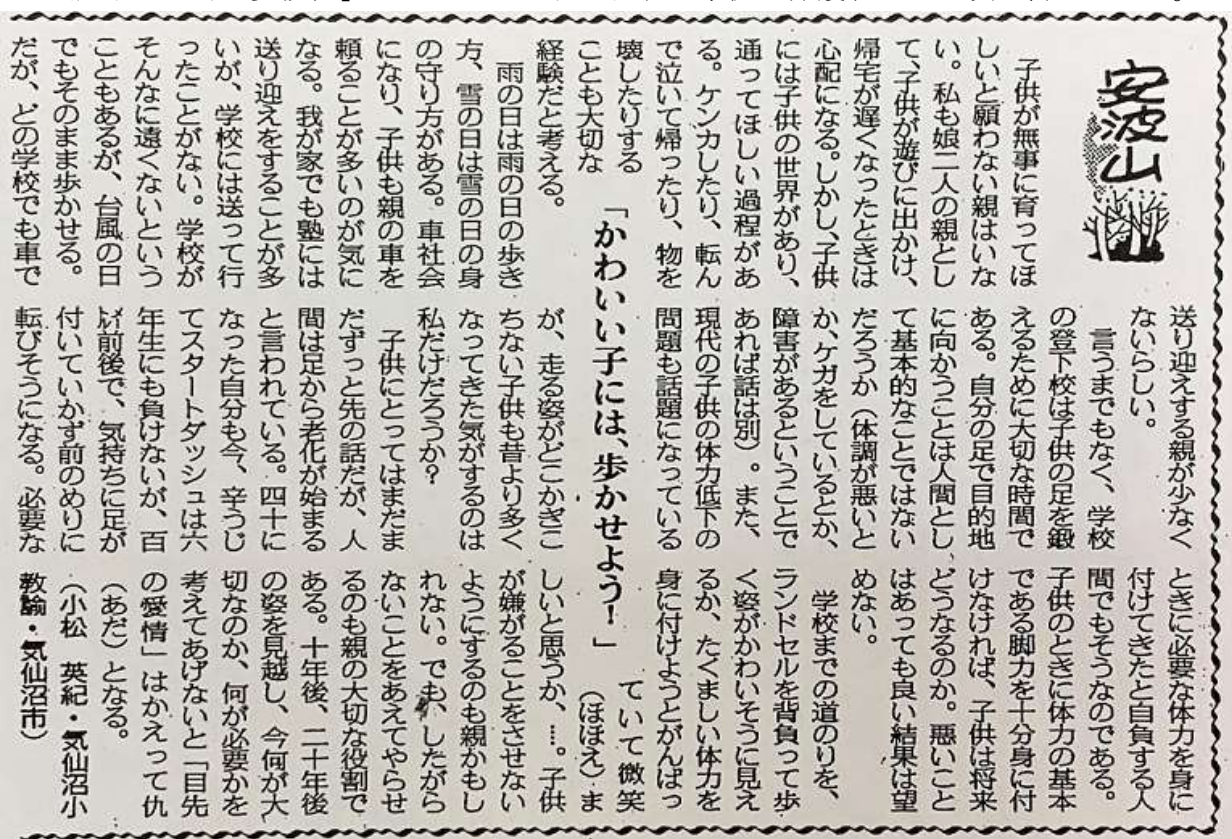 安波山
「かわいい子には、歩かせよう！」
子供が無事に育ってほ
しいと願わない親はいな
い。私も娘二人の親とし
て、子供が遊びに出かけ、
帰宅が遅くなったときは
心配になる。しかし、子供
には子供の世界があり、
通ってほしい過程があ
る。ケンカしたり、転ん
で泣いて帰ったり、物を
壊したりする
ことも大切な
経験だと考える。
雨の日は雨の日の歩き
方、雪の日は雪の日の身
の守り方がある。車社会
になり、子供も親の車を
頼ることが多いのが気に
なる。我が家でも塾には
送り迎えをすることが多
いが、学校には送って行
ったことがない。学校が
そんなに遠くないという
こともあるが、台風の日
でもそのまま歩かせる。
だが、どの学校でも車で
送り迎えする親が少なく
ないらしい。
言うまでもなく、学校
の登下校は子供の足を鍛
えるために大切な時間で
ある。自分の足で目的地
に向かうことは人間とし
て基本的なことではない
だろうか（体調が悪いと
か、ケガをしているとか、
障害があるということで
あれば話は別）。また、
現代の子供の体力低下の
問題も話題になっている
が、走る姿がどこかぎこ
ちない子供も昔より多く
なってきた気がするのは
私だけだろうか？
子供にとってはまだま
だずっと先の話だが、人
間は足から老化が始まる
と言われている。四十に
なった自分も今、辛うじ
てスタートダッシュは六
年生にも負けないが、百
㍍前後で、気持ちに足が
付いていかず前のめりに
転びそうになる。必要な
ときに必要な体力を身に
付けてきたと自負する人
間でもそうなのである。
子供のときに体力の基本
である脚力を十分身に付
けなければ、子供は将来
どうなるのか。悪いこと
はあっても良い結果は望
めない。
学校までの道のりを、
ランドセルを背負って歩
く姿がかわいそうに見え
るか、たくましい体力を
身に付けようとがんばっ
ていて微笑
（ほほえ）ま
しいと思うか、…。子供
が嫌がることをさせない
ようにするのも親かもし
れない。でも、したがら
ないことをあえてやらせ
るのも親の大切な役割で
ある。十年後、二十年後
の姿を見越し、今何が大
切なのか、何が必要かを
考えてあげないと「目先
の愛情」はかえって仇
（あだ）となる。
（小松　英紀・気仙沼小
教諭・気仙沼市）